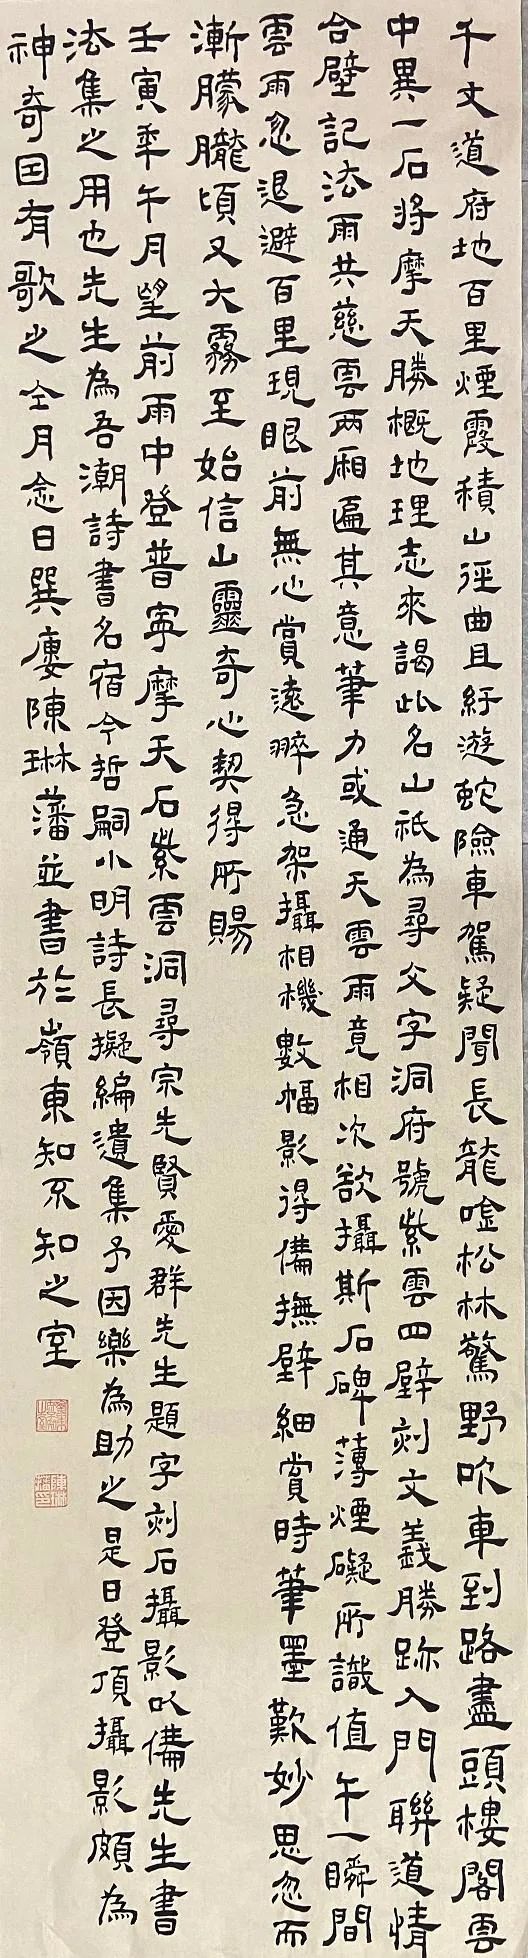 千丈道府地百里煙霞積山徑曲且紆遊蛇險車駕疑聞長龍噓松林驚野吹車到路盡頭樓閣雲
中異一石將摩天勝概地理志來謁此名山祇為尋文字洞府號紫雲四壁刻文義勝跡入門聯道情
合壁記法雨共慈雲兩厢匾其意筆力或通天雲雨竟相次欲攝斯石碑薄煙礙所識值午一瞬間
雲雨忽退避百里現眼前無心賞遠翠急架攝相機數幅影得備撫壁細賞時筆墨歎妙思忽而
漸朦朧頃又大霧至始信山靈奇心契得所賜
壬寅年午月望前雨中登普寧摩天石紫雲洞尋宗先賢愛群先生題字刻石攝影以備先生書
法集之用也先生為吾潮詩書名宿今哲嗣小明詩長擬編遺集予因樂為助之是日登頂攝影頗為
神奇因有歌之仝月念日巽廔陳琳藩並書於嶺東知不知之室